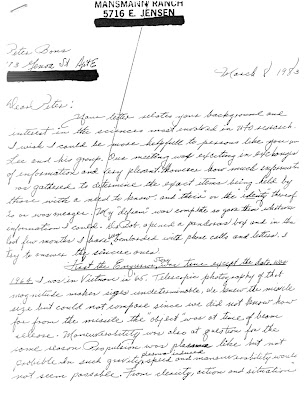 MANSMANN RANCH
5716 E. JENSEN
Peter Bons
March 8, 1983
Dear Peter:
Your letter states your background and
interest in the sciences most involved in UFO research.
I wish I could be more helpful to persons like you or
Lee and his group. Our meeting was exciting in exchange
of information and very pleasant. However how much information
was gathered to determine the exact items being held by
those with a need to know and their in the identity thing
is on was meager. My defense was complete so gave them whatever
information I could. Bob opened a pandora's box and in the
last few months I have been unloaded with phone calls and letters. I
try to answer the sincere ones.
First the Enquirer Story. True except the date was
1964. I was in Vietnam in '65. Telescopic photography of that
magnitude makes sizes undeterminable. We knew the missile
size but could not compare since we did not know how
far from the missile the "object" was at time of beam
release. Maneuverability was also a question for the
same reason. Propulsion was plasma like but not
probable. In such gravity, speed and maneuverability would
not seem possible. From clearity, action and situation